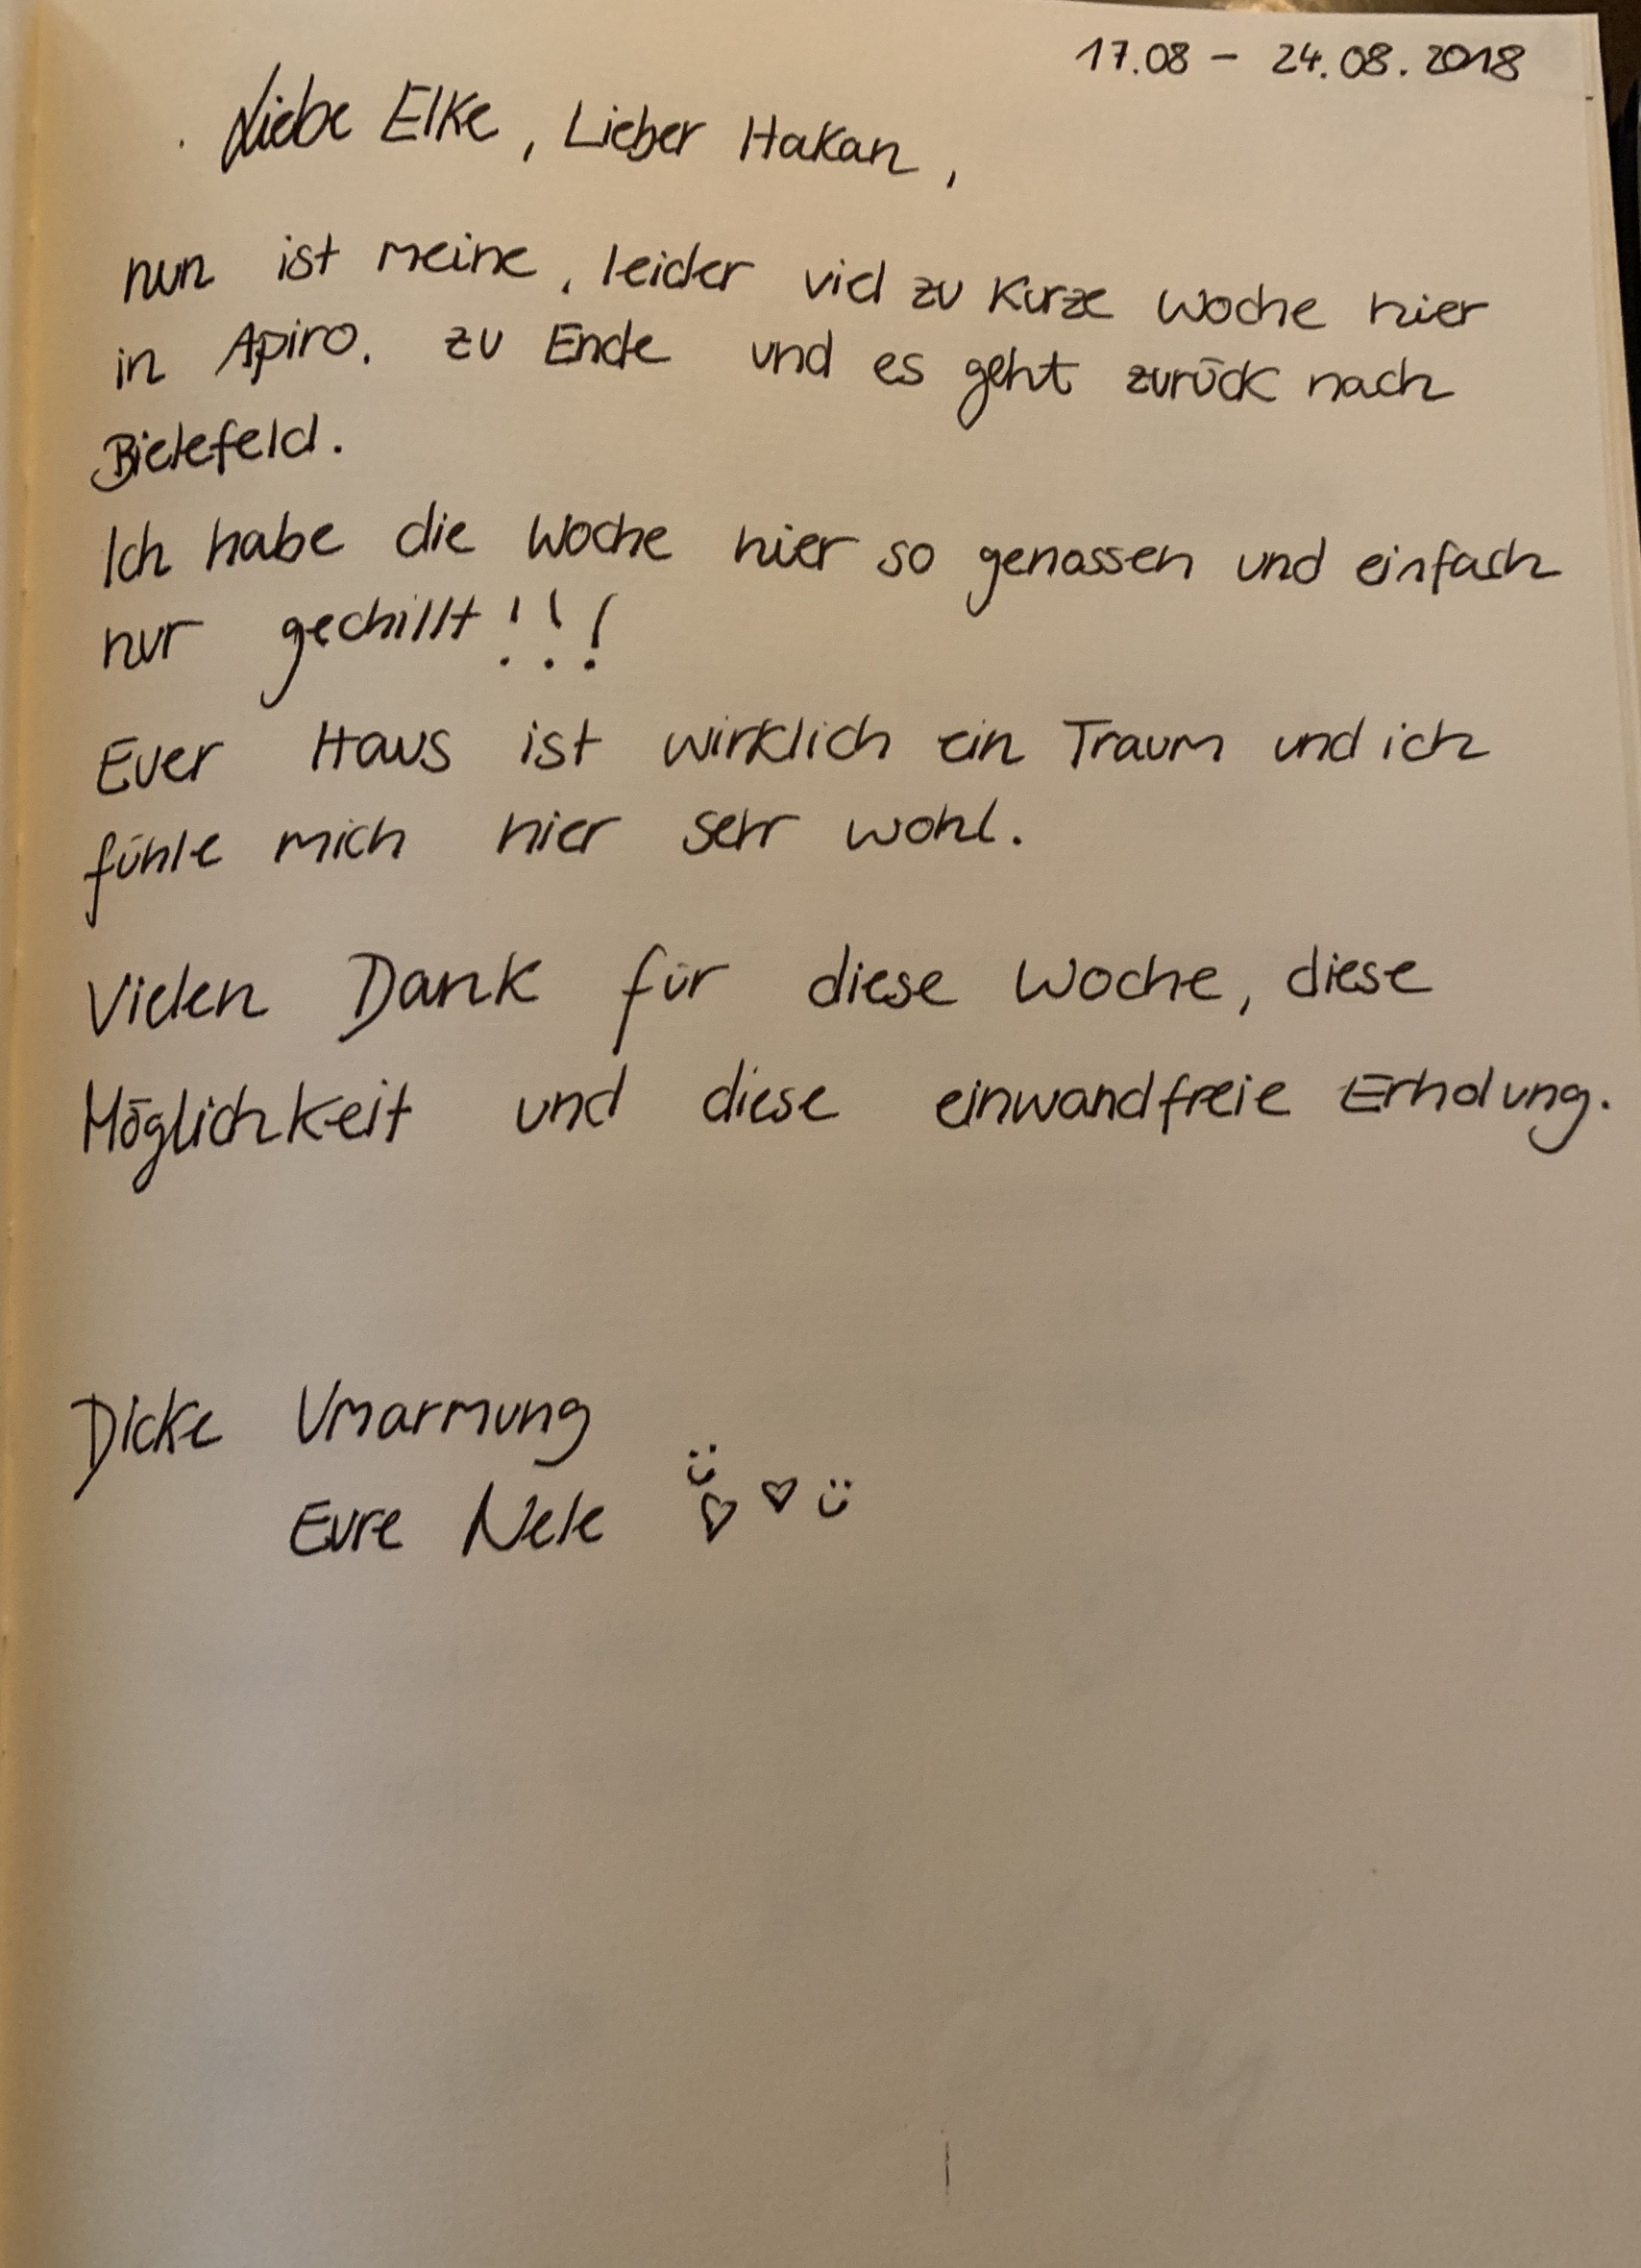 17.08 - 24.08.2018
Liebe Elke, Lieber Hakan,
nun ist meine, leider viel zu kurze Woche hier
in Apiro, zu Ende und es geht zurück nach
Bielefeld.
Ich habe die Woche hier so genossen und einfach
nur gechillt!!!
Euer Haus ist wirklich ein Traum und ich
fühle mich hier sehr wohl.
Vielen Dank für diese Woche, diese
Möglichkeit und diese einwandfreie Erholung.
Dicke Umarmung
Eure Nele